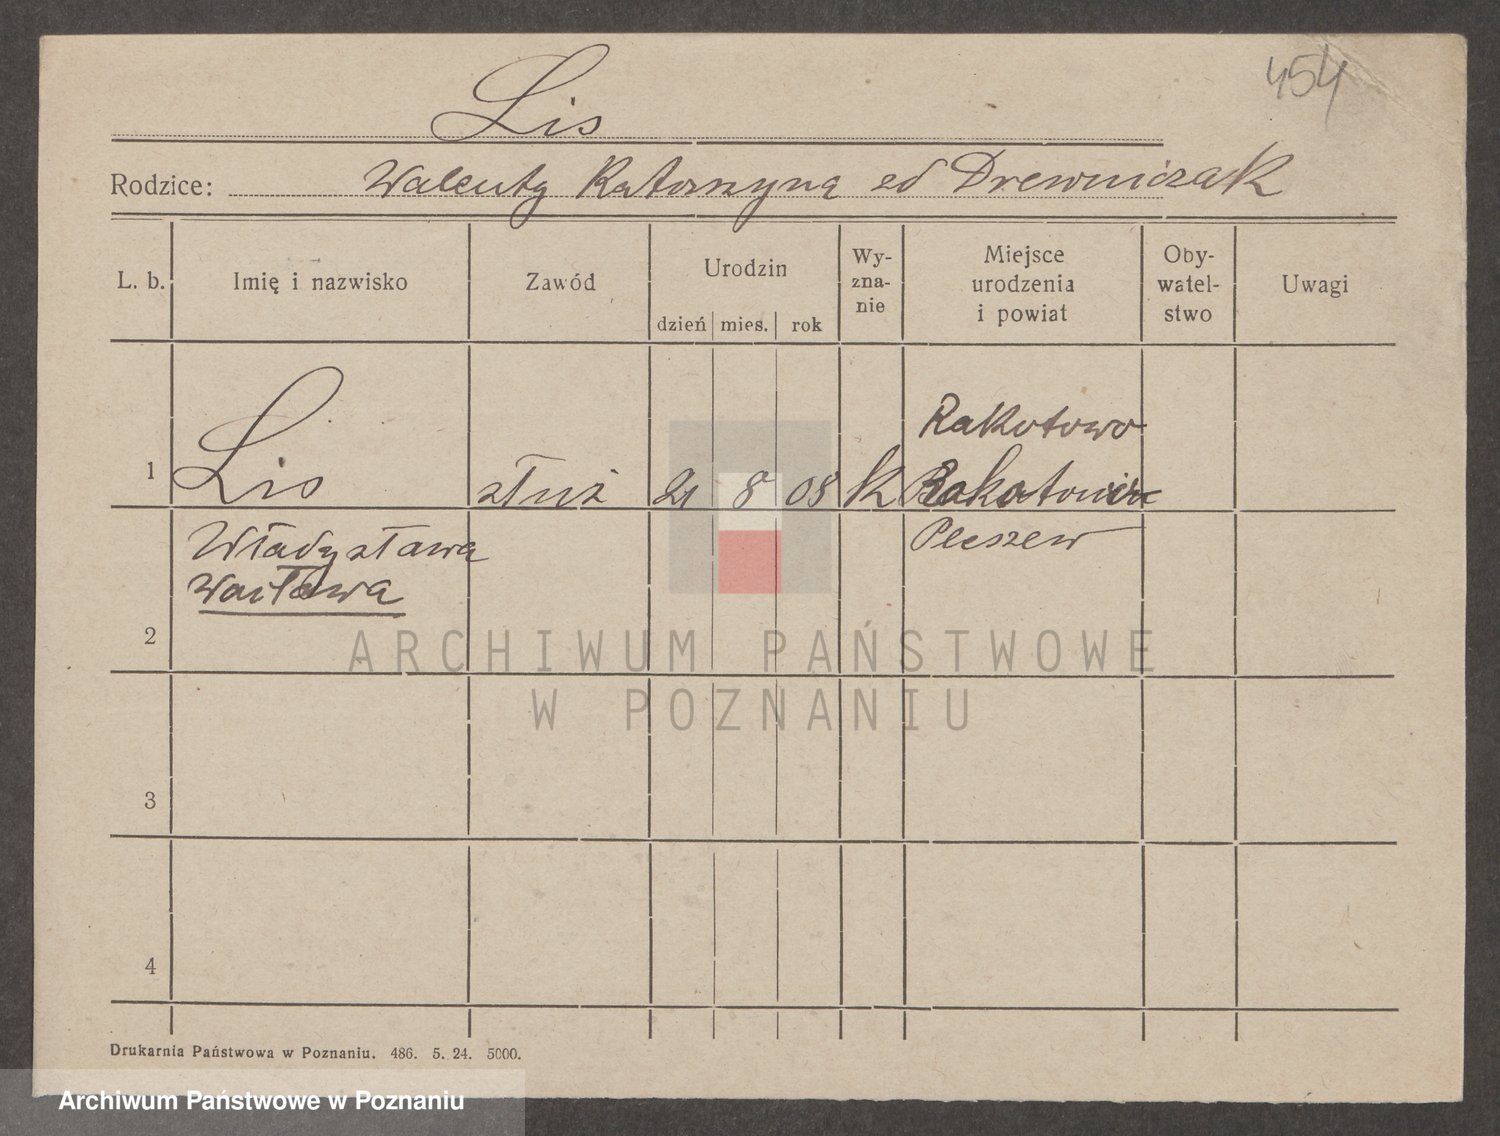 454
Lis
Rodzice: Walenty Katarzyna zd Drewniczak
L. b. Imię i nazwisko Zawód Urodzin dzień mies. rok Wy-zna-nie Miejsce urodzenia i powiat Oby-watel-stwo Uwagi
Rakotowo
1 Lis służ 21 8 08 K
Władysława Pleszew
Wacława
2
ARCHIWUM PAŃSTWOWE
W POZNANIU
3
4
Drukarnia Państwowa w Poznaniu. 486. 5. 24. 5000.
Archiwum Państwowe w Poznaniu